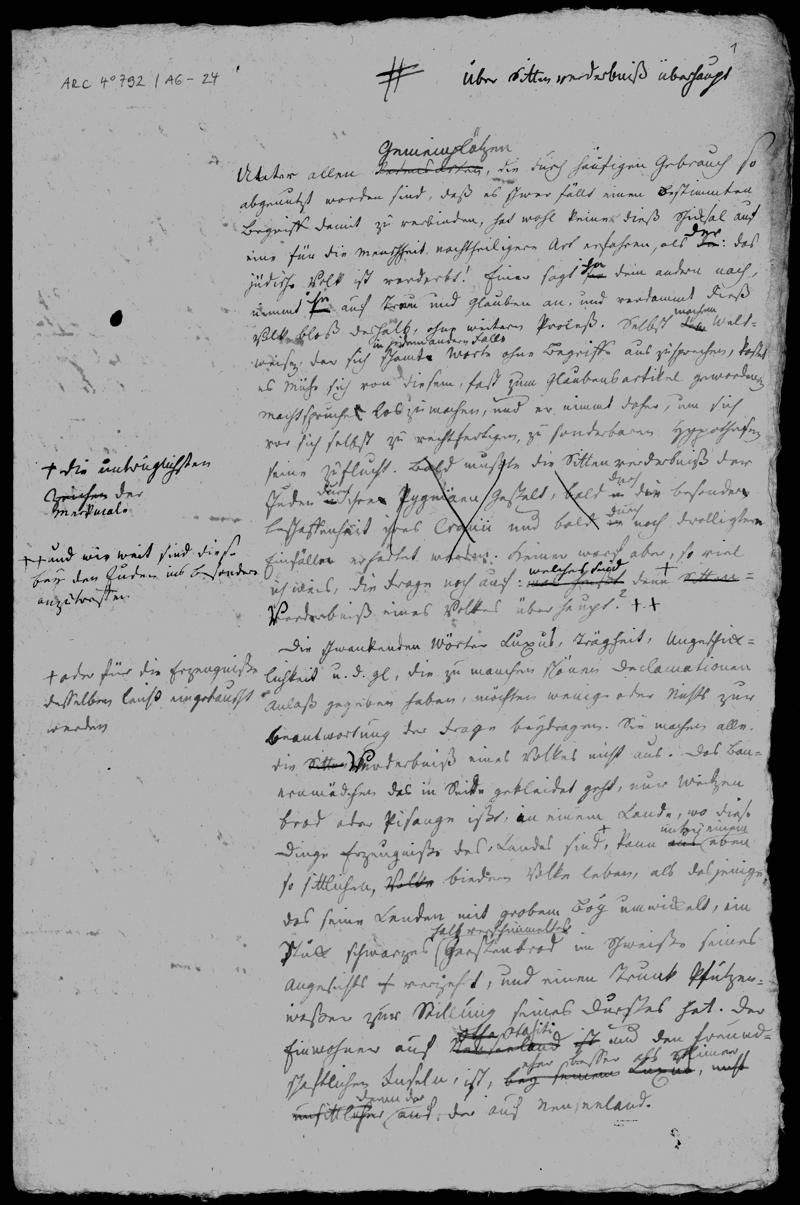 ARC 4° 792 / A6 - 24
1
# über Sittenverderbniß überhaupt
Gemeinplätzen
Unter allen die durch häufigen Gebrauch so
abgenutzt worden sind, daß es schwer fällt einen bestimmten
Begriff damit zu verbinden, hat wohl keiner dieß Schiksal auf
eine für die Menschheit nachtheiligere Art erfahren, als der: das
jüdische Volk ist verderbt! Einer sagt ihn dem andern nach,
nimmt ihn auf Treu und Glauben an, und verdammt dieß
Volk bloß deshalb, ohne weitern Proceß. Selbst manchen Welt=
in jedem andern Falle
weisen, der sich schämte Worte ohne Begriffe auszusprechen, kostet
es Mühe sich von diesem, fast zum Glaubensartikel gewordenen
Machtspruche loszumachen, und er nimmt daher, um sich
vor sich selbst zu rechtfertigen, zu sonderbaren Hypothesen
seine Zuflucht. Bald mußte die Sittenverderbniß der
Juden durch ihre Pygmäen Gestalt, bald durch die besondere
Beschaffenheit ihres Cranii und bald durch noch drolligere
Einfälle erhärtet werden. Keiner warf aber, so viel
ich weis, die Frage noch auf: welches sind denn +
Verderbniß eines Volkes überhaupt? ++
+ die untrüglichsten
Zeichen der
Merkmale
++ und wie weit sind diese
bey den Juden ins besondere
anzutreffen
Die schwankenden Wörter Luxus, Trägheit, Ungeschik=
lichkeit u. d. gl., die zu manchen schönen Declamationen
Anlaß gegeben haben, möchten wenig oder Nichts zur
Beantwortung der Frage beydragen. Sie machen alle
die Verderbniß eines Volkes nicht aus. Das Bau=
ernmädchen das in Seide gekleidet geht, nur Weitzen
brod oder Pisange ißt, in einem Lande, wo diese
Dinge Erzeugnisse des Landes sind +, kann unter einem eben
so sittlichen, biedern Volke leben, als dasjenige,
das seine Lenden mit grobem Boy umwickelt, ein
halb verschimmeltes
Stück schwarzes Gerstenbrod im Schweiße seines
Angesichts verzehrt, und einen Trunk Pfützen=
wasser zur Stillung seines Durstes hat. Der
Einwohner auf Otahaiti und den freund=
schaftlichen Inseln, ist, eher besser als schlimmer
denn der
der auf Neuseeland.
+ oder für die Erzeugnisse
desselben leicht eingetauscht
werden